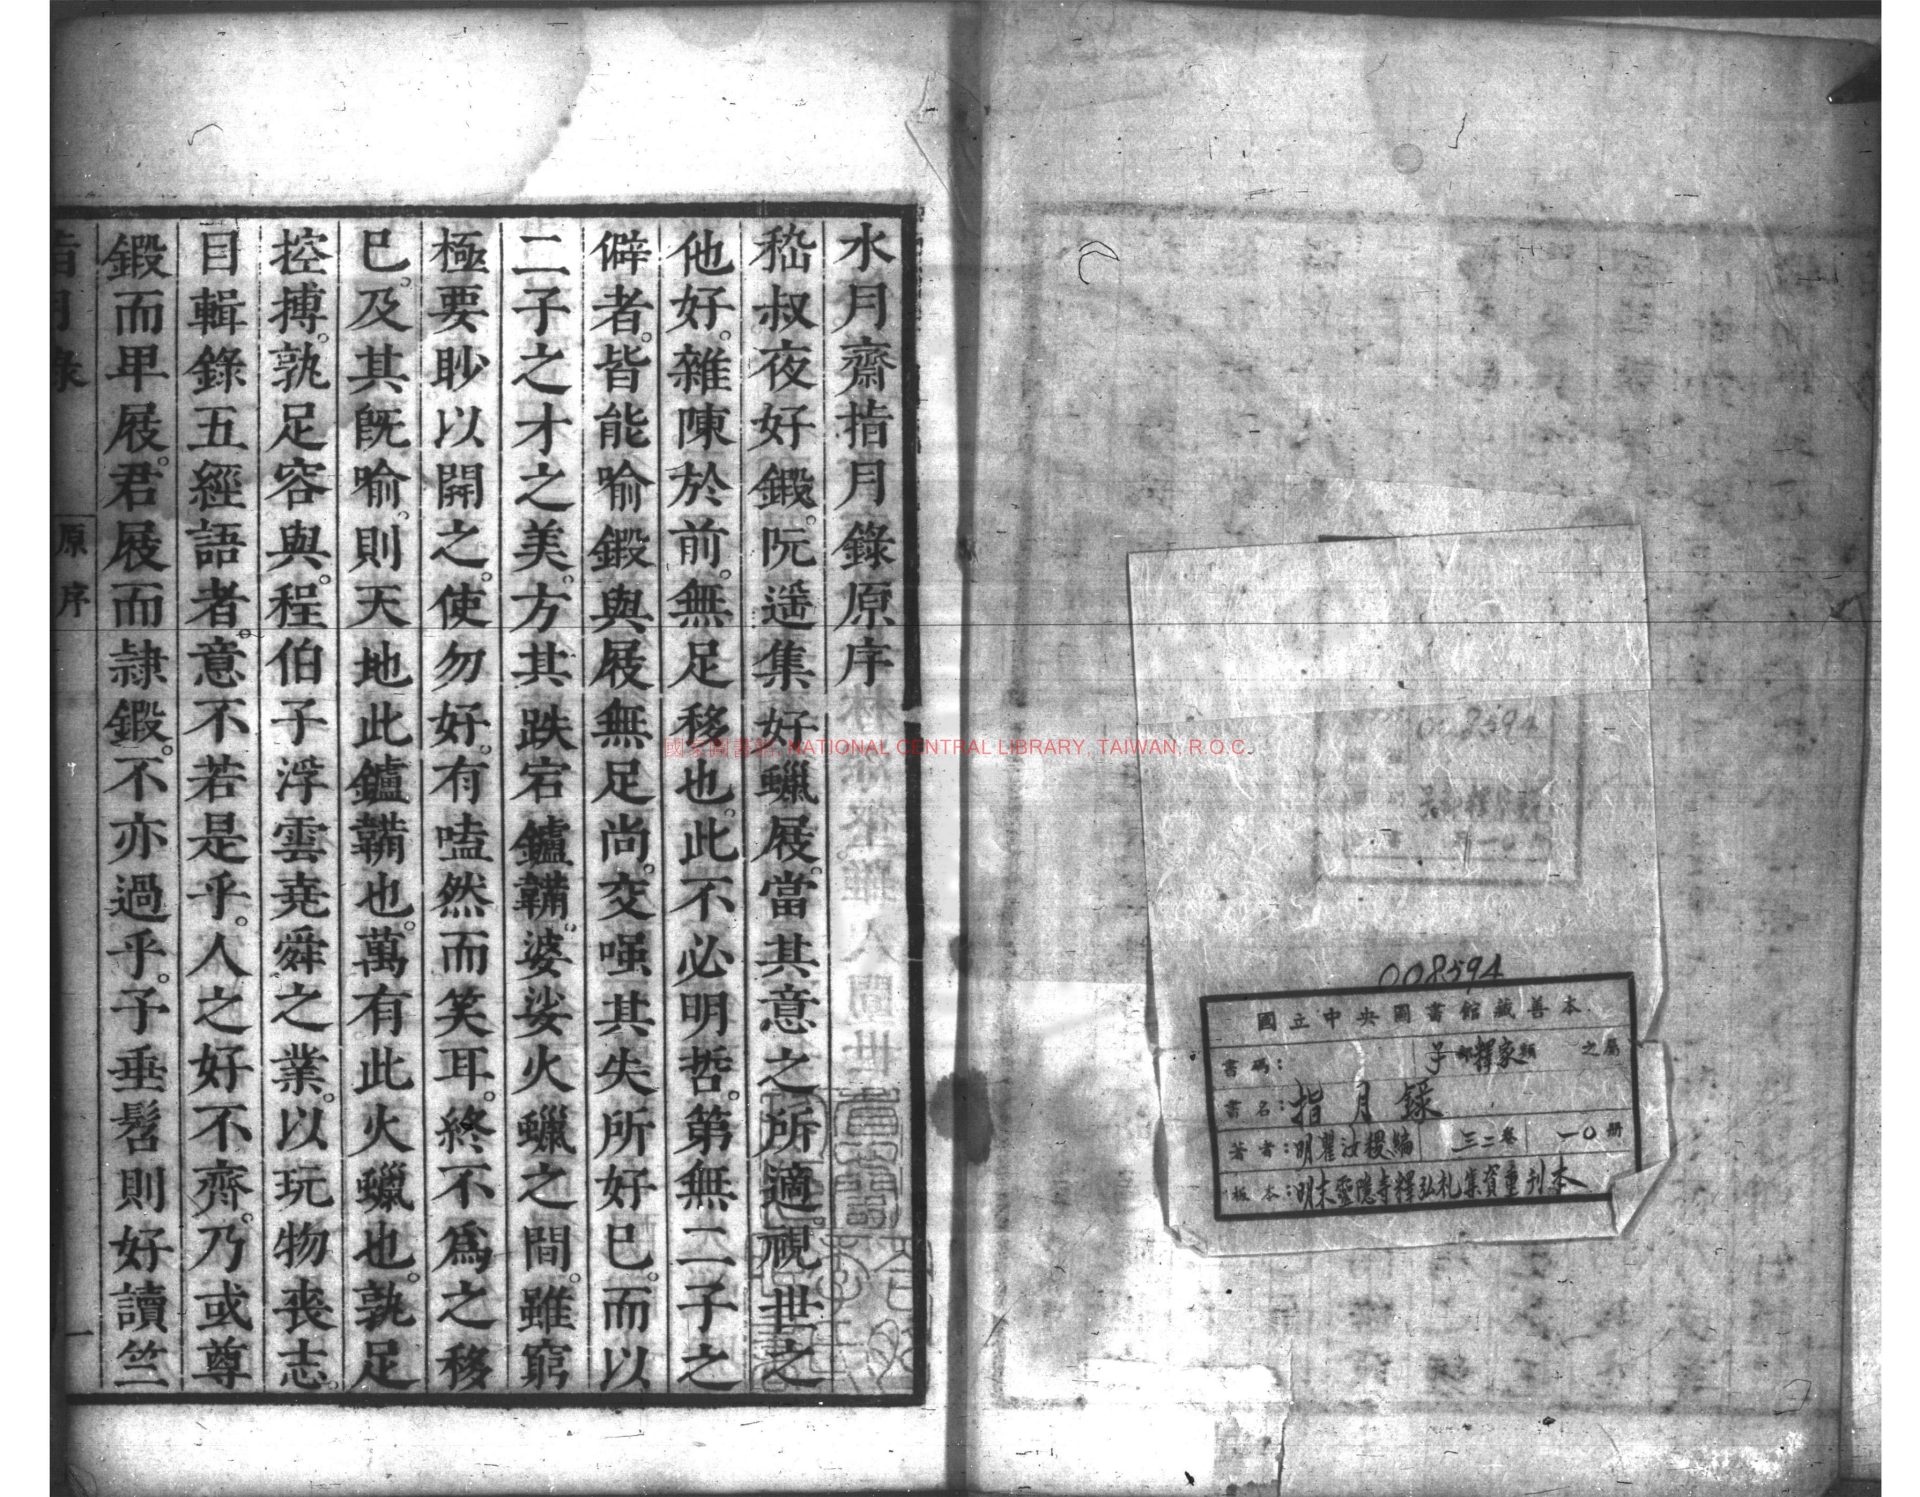 008594
國立中央圖書館藏善本
書碼：　子部釋家類之屬
書名：指月錄
著者：明瞿汝稷編　三二卷　一〇册
板本：明末靈隱寺釋弘礼集資重刊本
水月齋指月錄原序
嵇叔夜好鍛。阮遥集好蠟屐。當其意之所適。視世之
他好。雜陳於前。無足移也。此不必明哲。第無二子之
僻者。皆能喻鍛與屐無足尚。交嗤其失所好巳。而以
二子之才之美。方其跌宕鑪鞴。婆娑火蠟之間。雖窮
極要眇以開之。使勿好。有嗑然而笑耳。終不爲之移
巳。及其旣喻。則天地此鑪鞴也。萬有此火蠟也。孰足
控搏。孰足容與。程伯子浮雲堯舜之業。以玩物喪志。
目輯錄五經語者。意不若是乎。人之好不齊。乃或尊
鍛而甲屐。君屐而隷鍛。不亦過乎。予垂髫則好讀竺
指月錄　原序　一
國家圖書館, NATIONAL CENTRAL LIBRARY, TAIWAN, R.O.C.